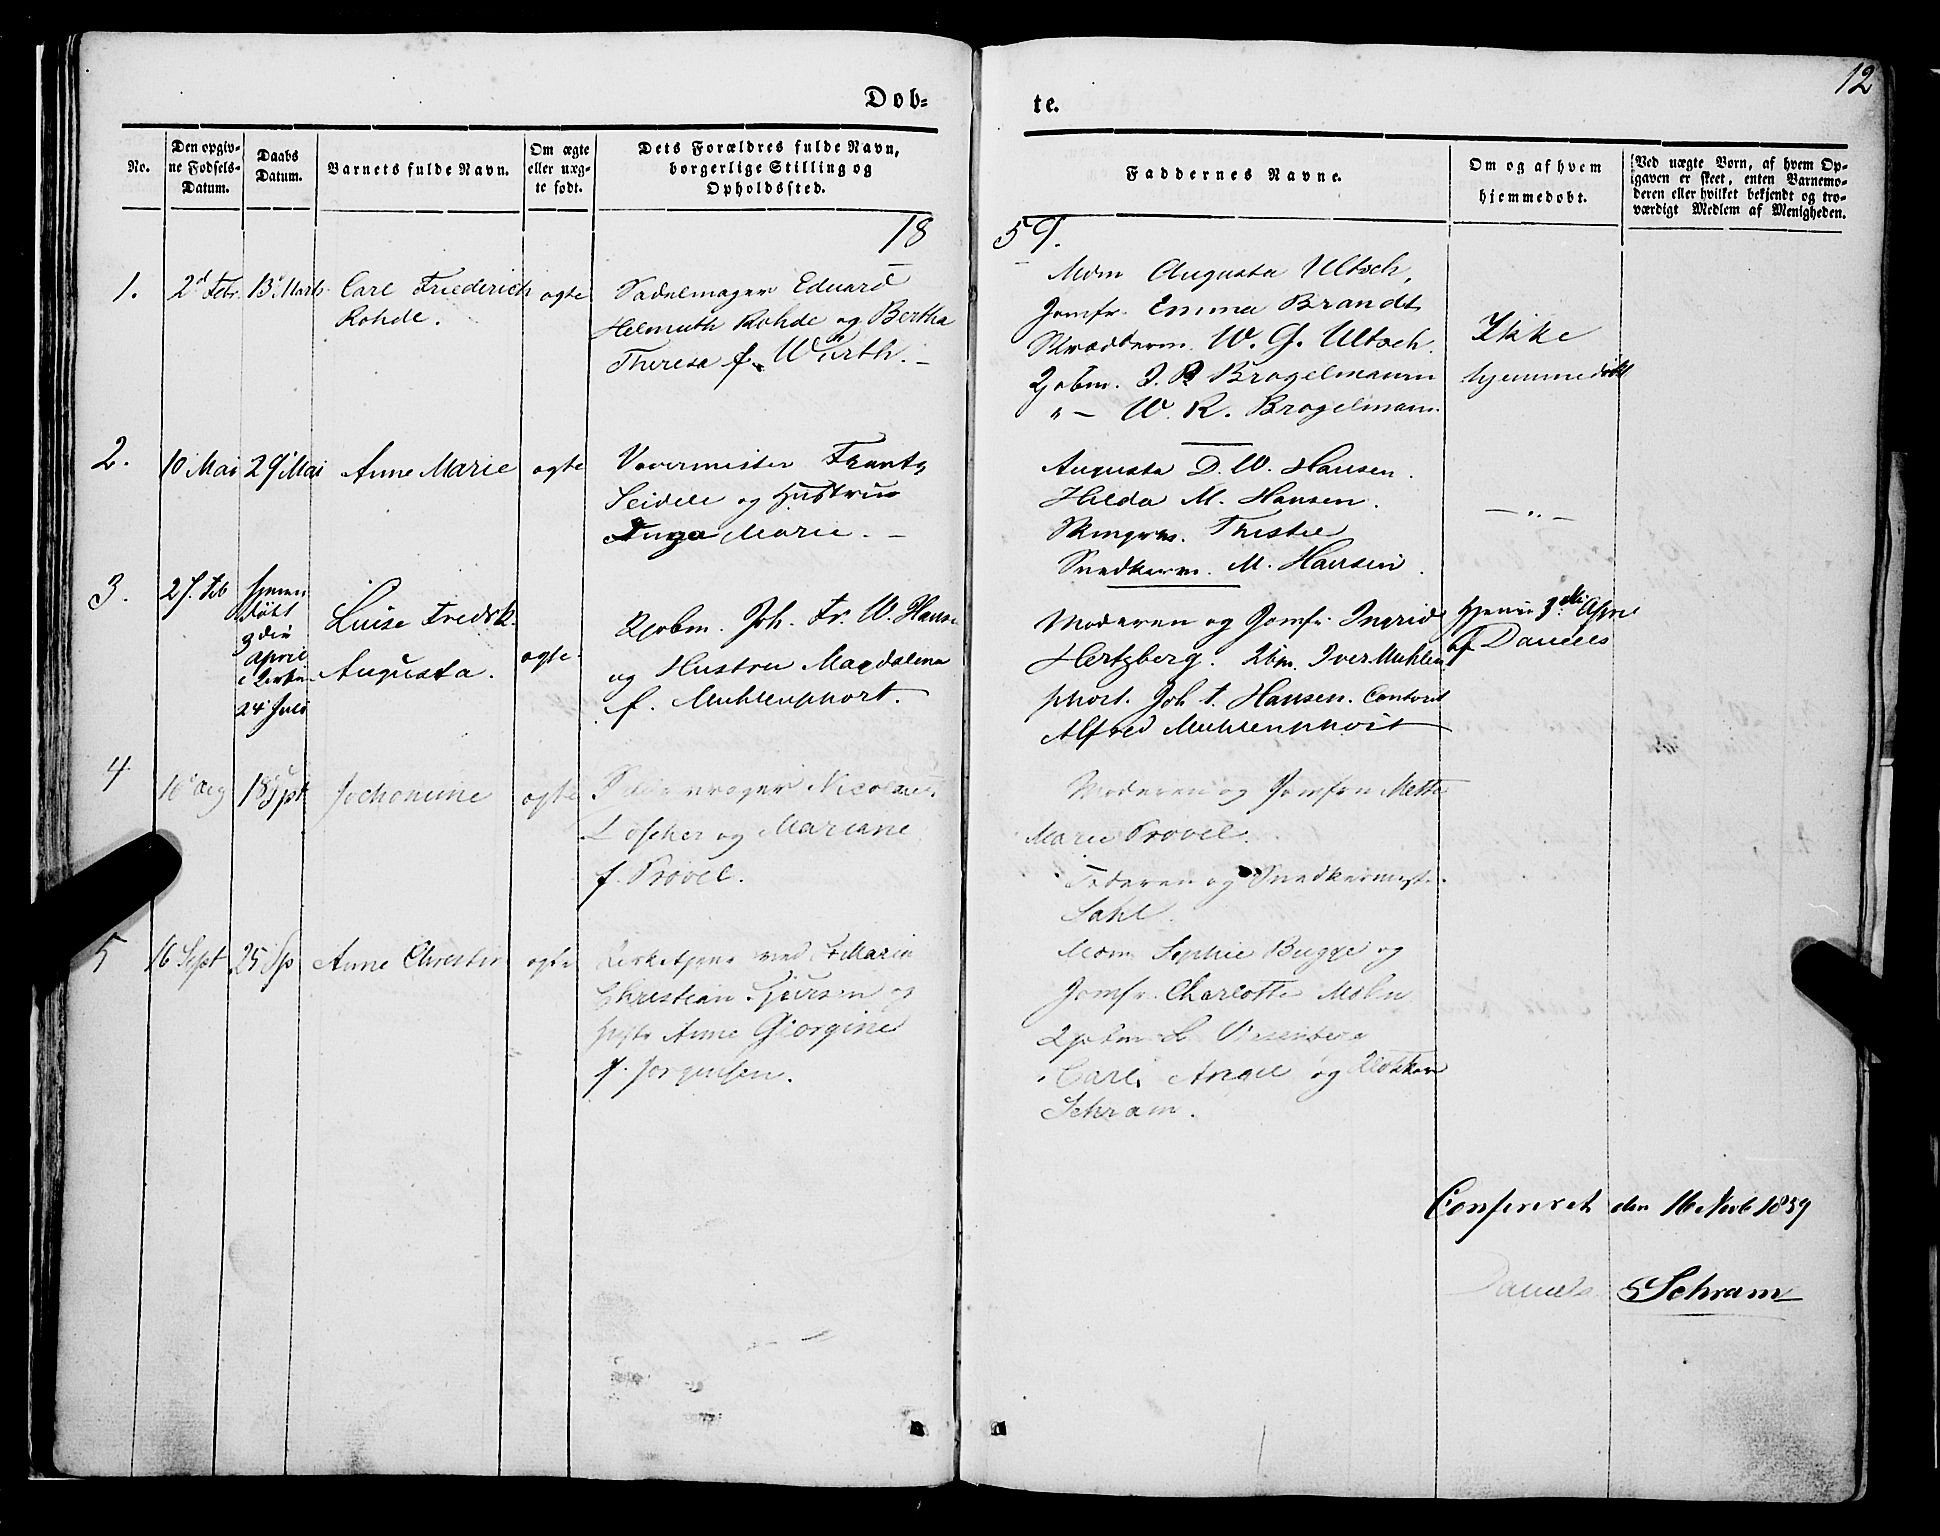 12
Døb-
te.
No.
Den opgiv-
ne Fødsels-
Datum.
Daabs
Datum.
Barnets fulde Navn.
Om ægte
eller uæg-
te født.
Dets Forældres fulde Navn,
borgerlige Stilling og
Opholdssted.
Faddernes Navne.
Om og af hvem
hjemmedøbt.
Ved uægte Børn, af hvem Op-
gaven er skeet, enten Barnemo-
deren eller hvilket bekjendt og tro-
værdigt Medlem af Menigheden.
18
59.
1.
2d Febr.
13 Marts
Carl Friederich
Rohde.
ægte
Sadelmager Eduard
Helmuth Rohde og Bertha
Theresa f. Würth. -
Mdm Augusta Ultsch,
Jomfr. Emma Brandt
Skrædderm. W. G. Ultsch.
Kjøbm. J. P. Brøgelmann
" - W. R. Brøgelmann.
Ikke
hjemmedøbt
2.
10 Mai
29 Mai
Anne Marie
ægte
Vævermester Frantz
Seidele og Hustrue
Marie. -
Augusta D. W. Hansen.
Hilda M. Hansen.
Thistel
Snedkerm. M. Hansen.
- " -
3.
27. Feb
hjemme
døbt
3 die
April
i Kirken
24 Juli
Luise Fredrk.
Augusta.
ægte
Kjøbm. Joh. Fr. W. Hansen
og Hustru Magdalena
f. Muhlenphort.
Moderen og Jomfr. Ingrid
Hertzberg. Kbm. Iver Muhlen
phort. Joh t. Hansen. Contorist
Alfred Muhlenphort
hjemme 3die April
af Daniels
4
10 Aug
18 Spt
Jochomine
ægte
Nicolaus
Løscher og Mariane
f. Prøvel.
Moderen og Jomfru Mette
Marie Prøvel.
Faderen og Snedkermest.
Sahl.
5
16 Sept
25 Sp
Anne Christin
ægte
Kirketjener ved St Marie
Christian Sjøvrsen og
Hustr Anne Giorgine
f. Jørgensen.
Mdm Sophie Bugge og
Jomfr. Charlotte Møln
Kjøbm L.
Carl Angel og Klokker
Schram.
Confereret den 16 Novb 1859
Daniels
Schram